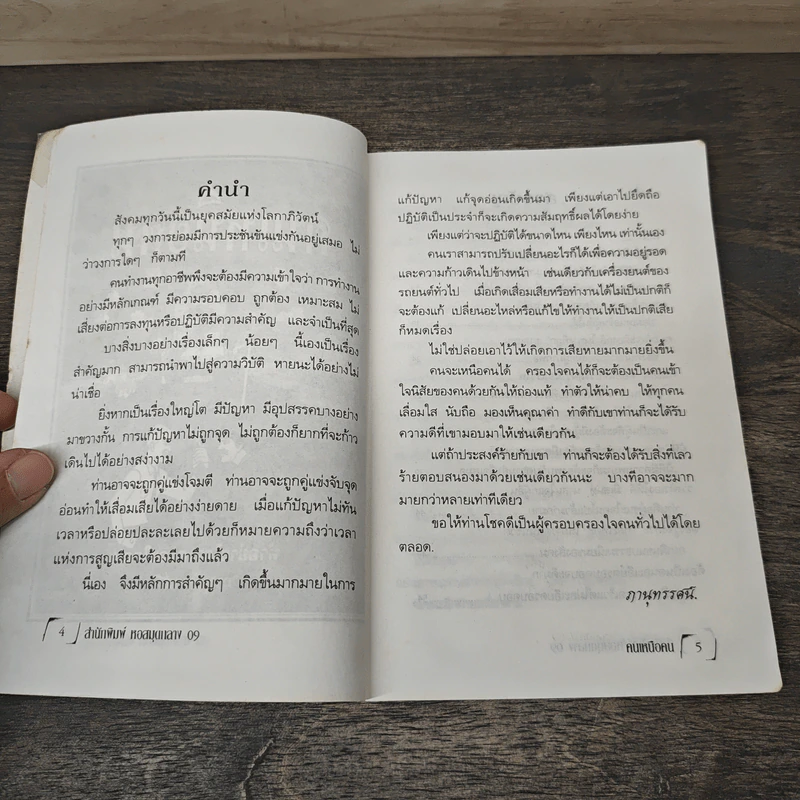 คำนำ
สังคมทุกวันนี้เป็นยุคสมัยแห่งโลกาภิวัตน์
ทุกๆ วงการย่อมมีการประชันขันแข่งกันอยู่เสมอ ไม่
ว่าวงการใดๆ ก็ตามที
คนทำงานทุกอาชีพพึงจะต้องมีความเข้าใจว่า การทำงาน
อย่างมีหลักเกณฑ์ มีความรอบคอบ ถูกต้อง เหมาะสม ไม่
เสี่ยงต่อการลงทุนหรือปฏิบัติมีความสำคัญ และจำเป็นที่สุด
บางสิ่งบางอย่างเรื่องเล็กๆ น้อยๆ นี้เองเป็นเรื่อง
สำคัญมาก สามารถนำพาไปสู่ความวิบัติ หายนะได้อย่างไม่
น่าเชื่อ
ยิ่งหากเป็นเรื่องใหญ่โต มีปัญหา มีอุปสรรคบางอย่าง
มาขวางกั้น การแก้ปัญหาไม่ถูกจุด ไม่ถูกต้องก็ยากที่จะก้าว
เดินไปได้อย่างสง่างาม
ท่านอาจจะถูกคู่แข่งโจมตี ท่านอาจจะถูกคู่แข่งจับจุด
อ่อนทำให้เสื่อมเสียได้อย่างง่ายดาย เมื่อแก้ปัญหาไม่ทัน
เวลาหรือปล่อยปละละเลยไปด้วยก็หมายความถึงว่าเวลา
แห่งการสูญเสียจะต้องมีมาถึงแล้ว
นี่เอง จึงมีหลักการสำคัญๆ เกิดขึ้นมากมายในการ
4 สำนักพิมพ์ หอสมุดกลาง 09
แก้ปัญหา แก้จุดอ่อนเกิดขึ้นมา เพียงแต่เอาไปยึดถือ
ปฏิบัติเป็นประจำก็จะเกิดความสัมฤทธิ์ผลได้โดยง่าย
เพียงแต่ว่าจะปฏิบัติได้ขนาดไหน เพียงไหน เท่านั้นเอง
คนเราสามารถปรับเปลี่ยนอะไรก็ได้เพื่อความอยู่รอด
และความก้าวเดินไปข้างหน้า เช่นเดียวกับเครื่องยนต์ของ
รถยนต์ทั่วไป เมื่อเกิดเสื่อมเสียหรือทำงานได้ไม่เป็นปกติก็
จะต้องแก้ เปลี่ยนอะไหล่หรือแก้ไขให้ทำงานให้เป็นปกติเสีย
ก็หมดเรื่อง
ไม่ใช่ปล่อยเอาไว้ให้เกิดการเสียหายมากมายยิ่งขึ้น
คนจะเหนือคนได้ ครองใจคนได้ก็จะต้องเป็นคนเข้า
ใจนิสัยของคนด้วยกันให้ถ่องแท้ ทำตัวให้น่าคบ ให้ทุกคน
เลื่อมใส นับถือ มองเห็นคุณค่า ทำดีกับเขาท่านก็จะได้รับ
ความดีที่เขามอบมาให้เช่นเดียวกัน
แต่ถ้าประสงค์ร้ายกับเขา ท่านก็จะต้องได้รับสิ่งที่เลว
ร้ายตอบสนองมาด้วยเช่นเดียวกันนะ บางทีอาจจะมาก
มายกว่าหลายเท่าทีเดียว
ขอให้ท่านโชคดีเป็นผู้ครอบครองใจคนทั่วไปได้โดย
ตลอด.
ภานุทรรศน์.
คนเหนือคน 5